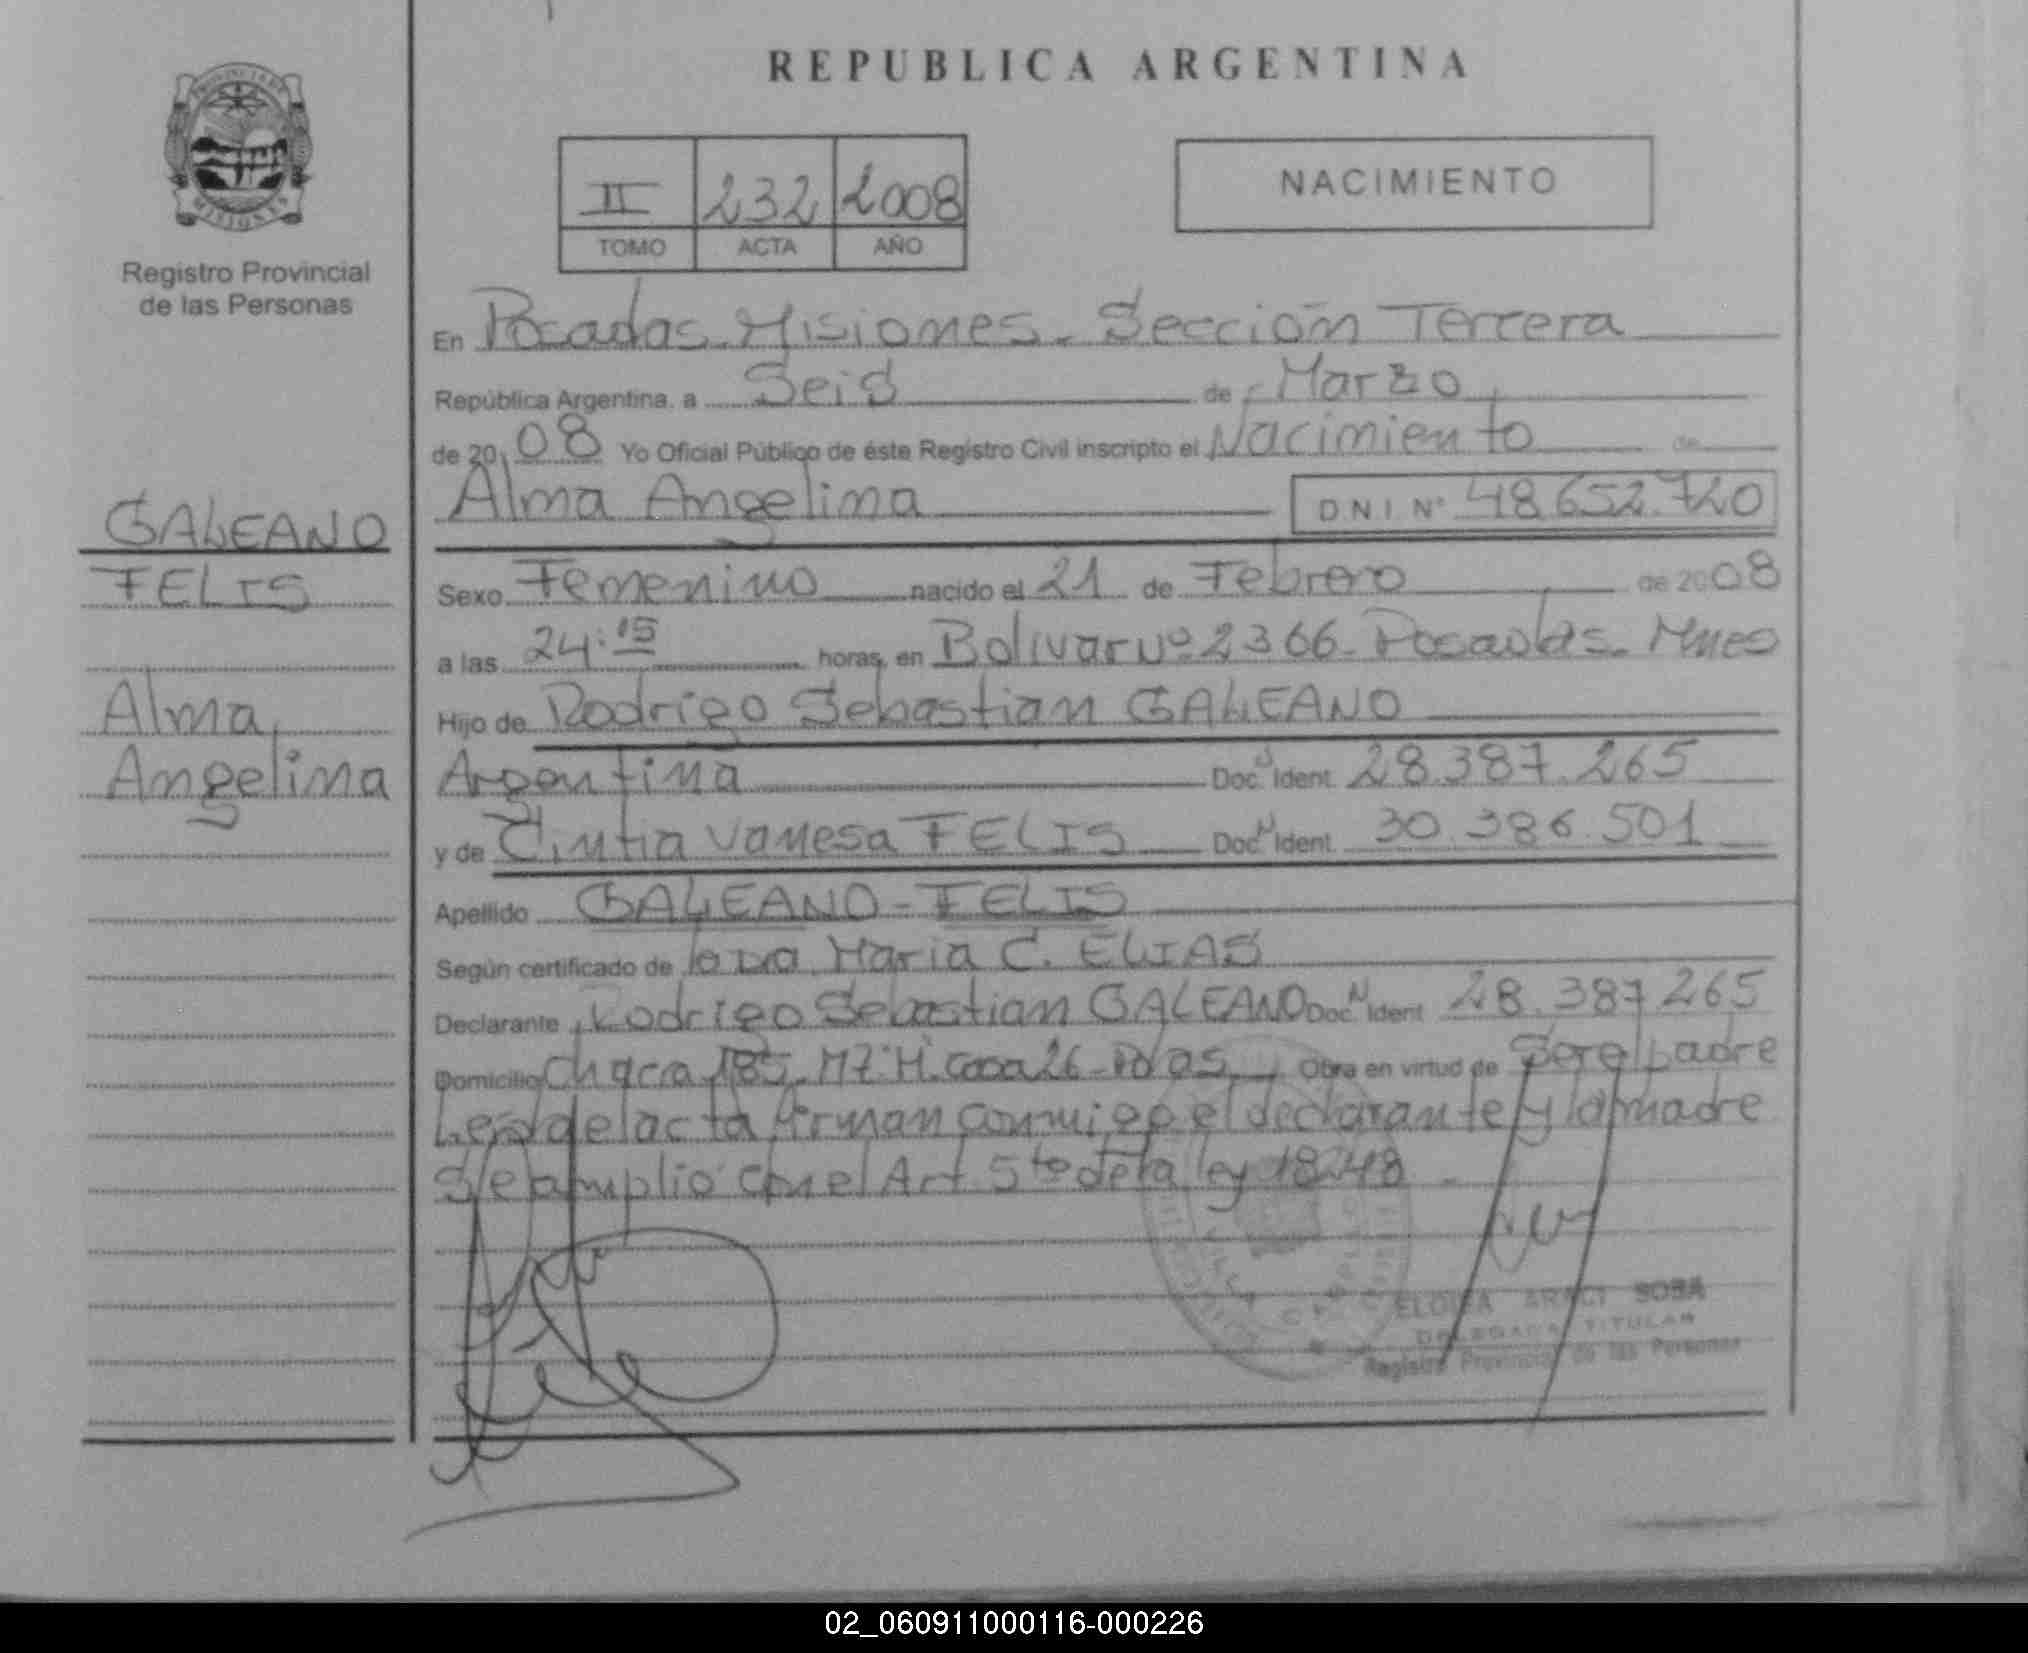 REPUBLICA ARGENTINA
PROVINCIA DE
MISIONES
Registro Provincial
de las Personas
II 232 2008
TOMO ACTA AÑO
NACIMIENTO
GALEANO
FELIS
Alma
Angelina
En Posadas Misiones. Sección Tercera
República Argentina, a Seis de Marzo
de 2008 Yo Oficial Público de éste Registro Civil inscripto el Nacimiento de
Alma Angelina DNI Nº 48.652.720
Sexo Femenino nacido el 21 de Febrero de 2008
a las 24:15 horas, en Bolivar Nº 2366 Posadas. Mnes
Hijo de Rodrigo Sebastian GALEANO
Argentina Doc. Ident. 28.387.265
y de Cintia Vanesa FELIS Doc. Ident. 30.386.501
Apellido GALEANO-FELIS
Según certificado de la Dra Maria C. ELIAS
Declarante Rodrigo Sebastian GALEANO Doc. Ident. 28.387.265
Domicilio Chacra 185. MZ. H. Casa 26-Pdas Obra en virtud de Ser el padre
Leída el acta firman conmigo el declarante y la madre
Se amplió con el Art. 5to de la ley 18248
ELOISA ARACI SOSA
DELEGADA TITULAR
Registro Provincial de las Personas
02_060911000116-000226